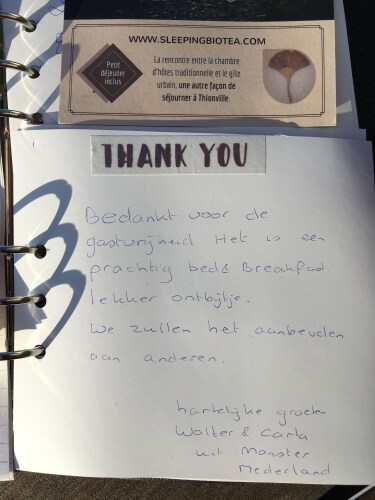 WWW.SLEEPINGBIOTEA.COM
Petit
déjeuner
inclus
La rencontre entre la chambre
d'hôtes traditionnelle et le gîte
urbain, une autre façon de
séjourner à Thionville.
THANK YOU
Bedankt voor de
gastvrijheid. Het is een
prachtig bed & Breakfast
lekker ontbijtje.
We zullen het aanbevelen
aan anderen.
hartelijke groeten
Wolter & Carla
uit Monster
Nederland